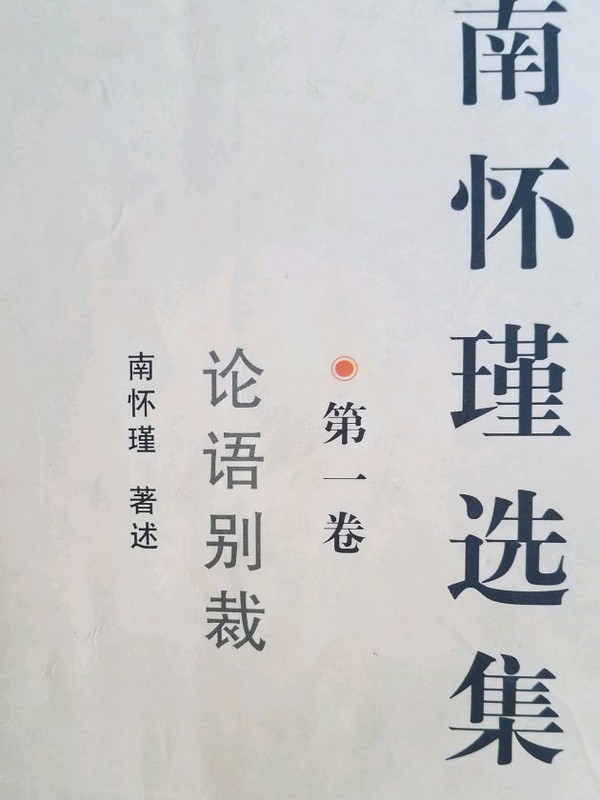 南怀瑾选集
第一卷
论语别裁
南怀瑾 著述